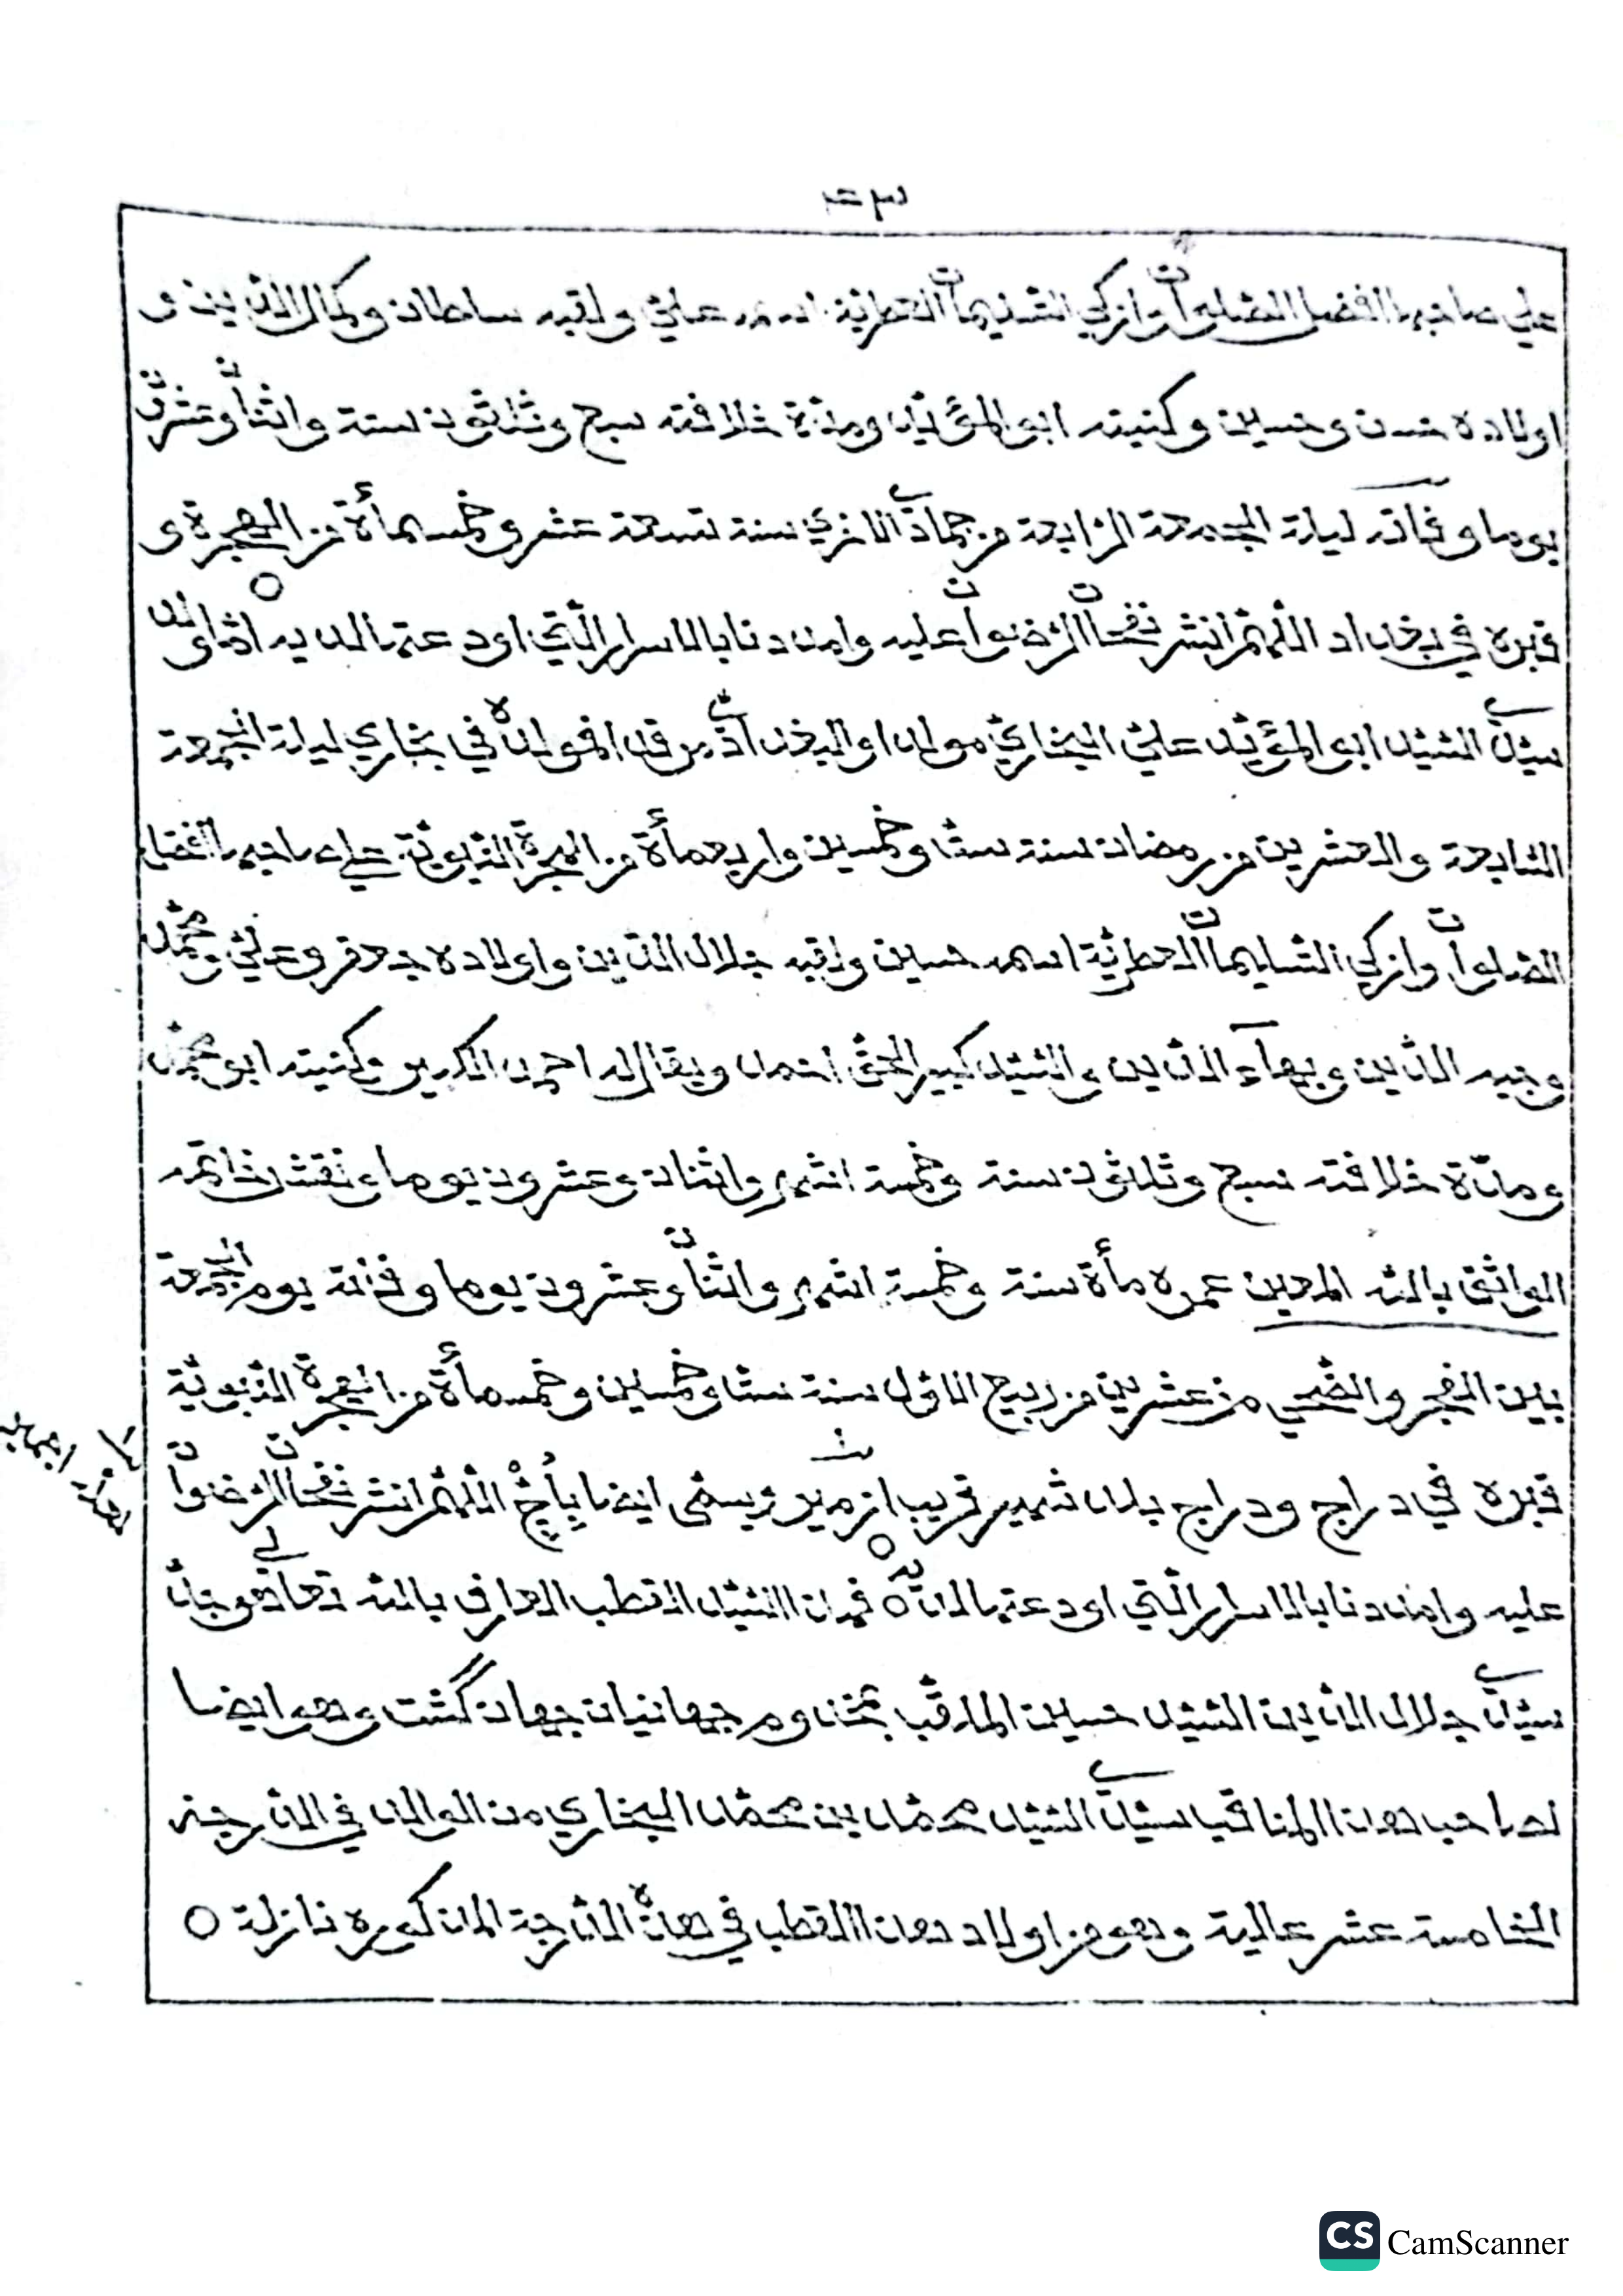 علي صاحبها افضل الصلوات وازكي التسليمات العطرية اسمه علي ولقبه سلطان وكمال الدين و
اولاده حسن وحسين وكنيته ابو المؤيد ومدة خلافته سبع وثلاثون سنة واثنا وعشرون
يوما وفاته ليلة الجمعة الرابعة من جمادي الاخري سنة تسعة عشر وخمسمأة من الهجرة و
قبره في بغداد اللهم انشر نفحات الرضوان عليه وامددنا بالاسرار التي اودعتها لديه ○ اما والد
سيدي السيد ابو المؤيد علي البخاري مولدا والبغدادي مرقدا فمولده في بخاري ليلة الجمعة
السابعة والعشرين من رمضان سنة ستا وخمسين واربعمأة من الهجرة النبوية علي صاحبها افضل
الصلوات وازكي التسليمات العطرية اسمه حسين ولقبه جلال الدين واولاده جعفر وعلي ومحمد
وجيه الدين وبهاء الدين والسيد كبير الحق احمد ويقال له احمد الكبير وكنيته ابو محمد
ومدة خلافته سبع وثلثون سنة وخمسة اشهر واثنان وعشرون يوما ونقش خاتمه
الواثق بالله المعين عمره مأة سنة وخمسة اشهر واثنان وعشرون يوما وفاته يوم الجمعة
بين الفجر والضحي من عشرين من ربيع الاول سنة ستا وخمسين وخمسمأة من الهجرة النبوية
قبره في دراج ودراج بلد شهير قريب از ميرث يسمى ايضا بأچْ اللهم انشر نفحات الرضوان
عليه وامددنا بالاسرار التي اودعتها لديه ○ فهذا السيد القطب العارف بالله تعالي هو جد
سيدي جلال الدين السيد حسين الملقب بمخدوم جهانيان جهان گشت وهو ايضا
لصاحب هذا المناقب سيدي السيد محمد بن محمد البخاري من الوالد في الدرجة
الخامسة عشر عالية وهو من اولاد هذا القطب في هذه الدرجة المذكورة نازلة ○
CS CamScanner